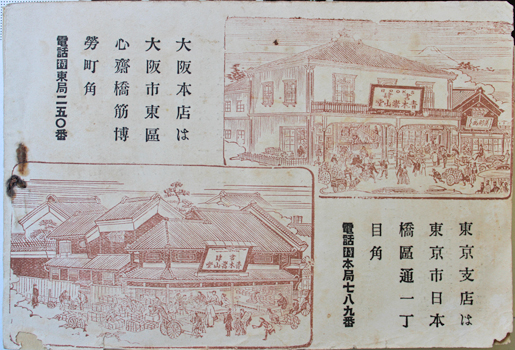 大阪本店は
大阪市東區
心齋橋筋博
勞町角
電話圏東局二五〇番
東京支店は
東京市日本
橋區通一丁
目角
電話圏本局七八九番
青木嵩山堂
青木嵩山堂